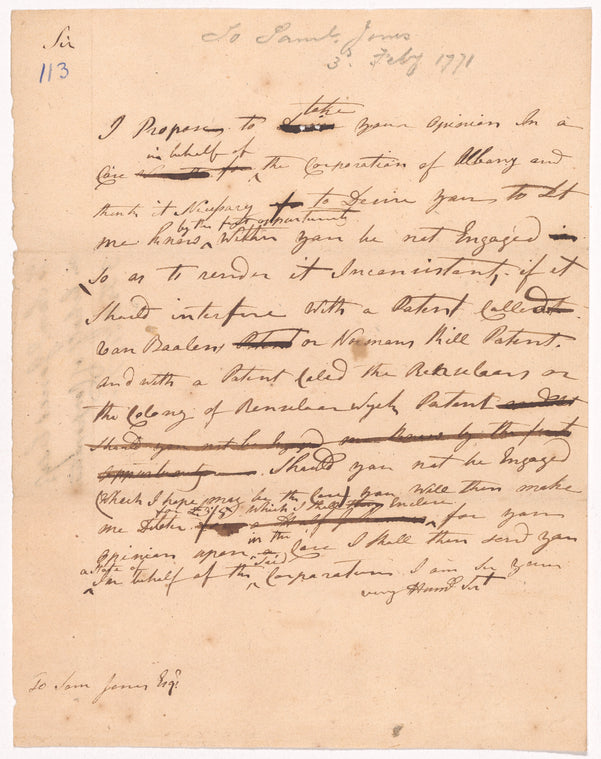 Sir
113
To Saml. Jones
3d. Feby 1771
I Propose to take your opinion In a
in behalf of
Case the Corporation of Albany and
think it Necessary to Desire you to Let
by the first opportunity
me know Wither you be not Engaged in
So as to render it Inconsistant, if it
Should interfere With a Patent Called
van Baalens Patent or Normans Kill Patent.
and with a Patent Caled the Renselaers or
the Colony of Renselaer Wyck Patent
Should you not be Engaged
opportunity Should you not be Engaged
(Which I hope may be the Case) you Will then make
for £3/5/ which I shall Enclose
me Debter for your
in the
opinion upon Case I shall then send you
a State of Said
In behalf of the Corporation I am Sir your
very Humb Sert
To Sam Jones Esqr.